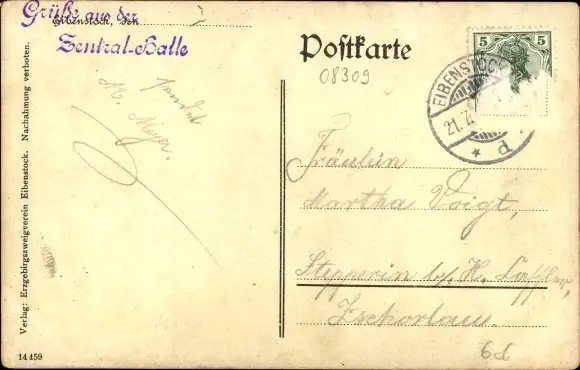 Grüße aus der
Eibenstock, den
Zentral-Halle
Postkarte
08309
5 5
EIBENSTOCK
21.7.
* d
M. Meyer.
Fräulein
Martha Voigt,
Stepperin b/ H.
Zschorlau.
6d
Verlag: Erzgebirgszweigverein Eibenstock. Nachahmung verboten.
14459